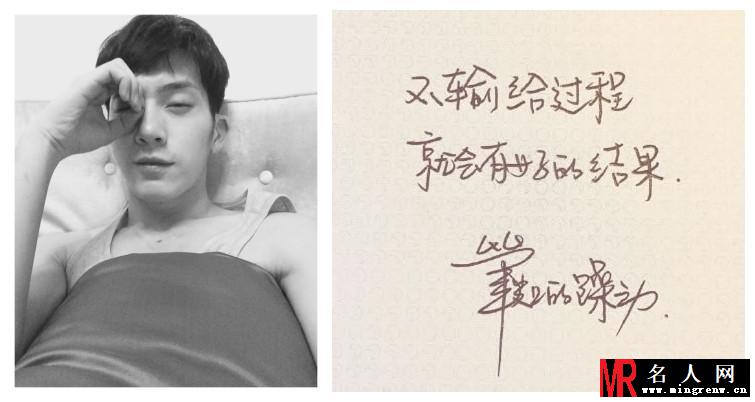 不输给过程
就会有好的结果.
的躁动.
MR 名人网
www.mingrenw.cn